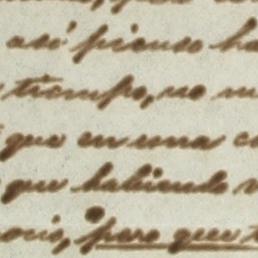 así pienso ha
tiempo, no
que en una c
que habiendo v
pero que